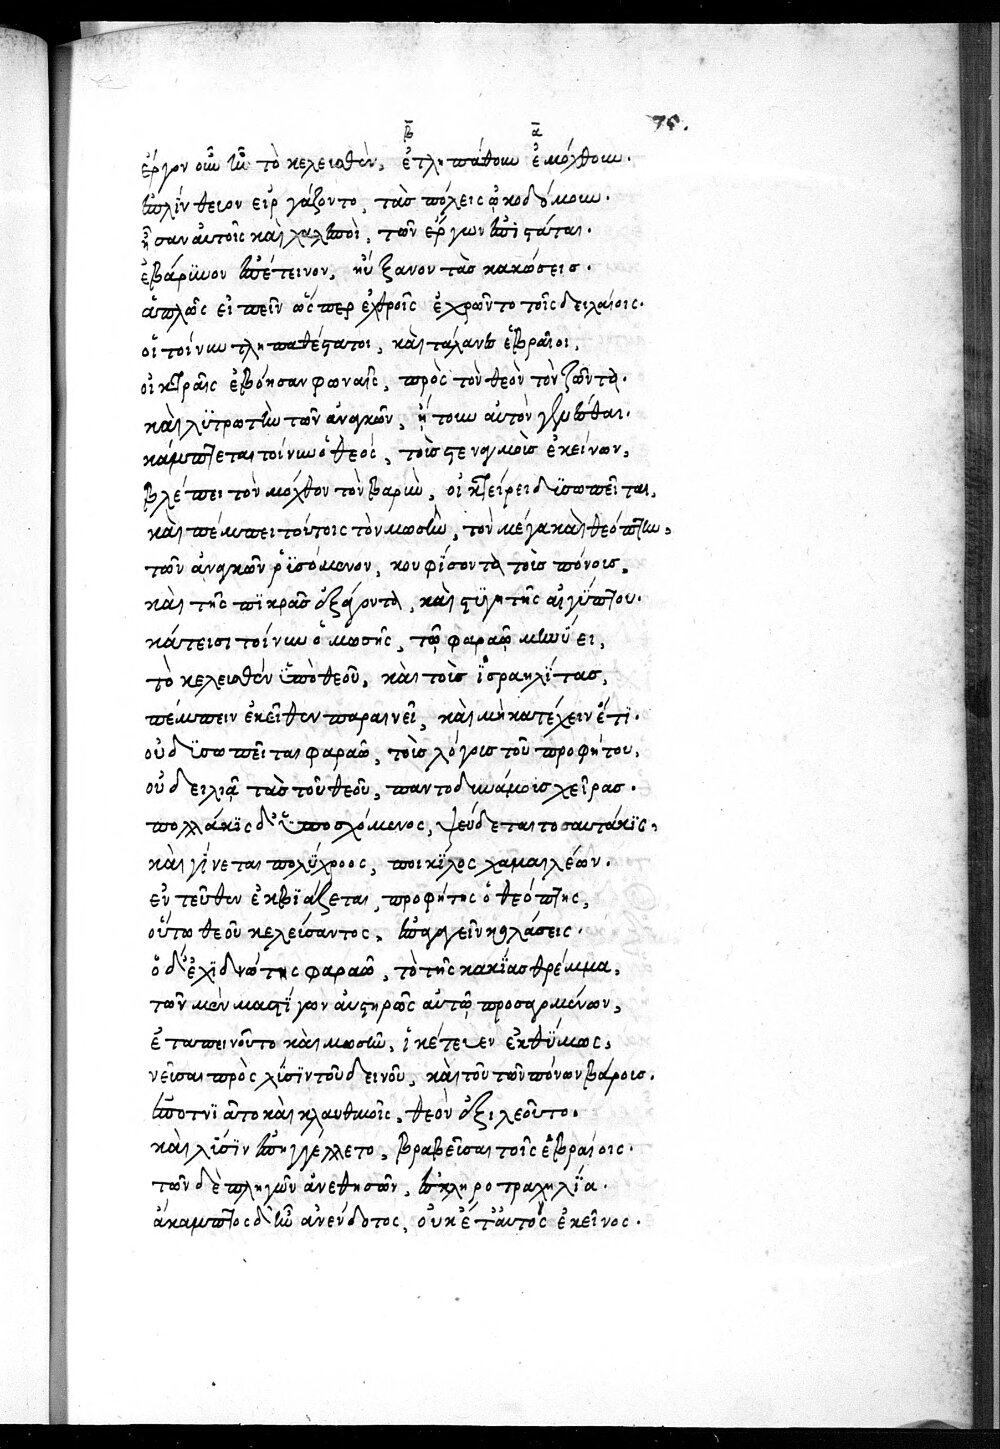 75.
β̄ ᾱ
ἔργον οὖν ἦν τὸ κελευσθὲν, ἐτληπάθουν ἐμόχθουν.
ἐπλίνθευον εἰργάζοντο, τὰς πόλεις ᾠκοδόμουν.
ἦσαν αὐτοῖς καὶ χαλεποὶ, τῶν ἔργων ἐπιστάται.
ἐβάρυνον ἐπέτεινον, ηὔξανον τὰς κακώσεις.
ἁπλῶς εἰπεῖν ὥσπερ ἐχθροῖς ἐχρῶντο τοῖς δειλαίοις.
οἱ τοίνυν τληπαθέστατοι, καὶ τάλανες ἑβραῖοι,
οἰκτραῖς ἐβόησαν φωναῖς, πρὸς τὸν θεὸν τὸν ζῶντα.
καὶ λυτρωτὴν τῶν ἀναγκῶν, ᾔτουν αὐτὸν γενέσθαι.
κάμπτεται τοίνυν ὁ θεὸς, τοῖς στεναγμοῖς ἐκείνων,
βλέπει τὸν μόχθον τὸν βαρὺν, οἰκτείρει δυσωπεῖται,
καὶ πέμπει τούτοις τὸν μωσῆν, τὸν μέγα καὶ θεόπτην,
τῶν ἀναγκῶν ῥυσόμενον, κουφίσοντα τοῖς πόνοις,
καὶ τῆς πικρᾶς ἐξάγοντα, καὶ στυγητῆς αἰγύπτου.
κάτεισι τοίνυν ὁ μωσῆς, τῷ φαραῷ μηνύει,
τὸ κελευσθὲν ὑπὸ θεοῦ, καὶ τοὺς ἰσραηλίτας,
πέμπειν ἐκεῖθεν παραινεῖ, καὶ μὴ κατέχειν ἔτι.
οὐ δυσωπεῖται φαραὼ, τοὺς λόγους τοῦ προφήτου,
οὐ δειλιᾷ τὰς τοῦ θεοῦ, παντοδυνάμους χεῖρας.
πολλάκις δ' ὑποσχόμενος, ψεύδεται τοσαυτάκις,
καὶ γίνεται πολύχροος, ποικίλος χαμαιλέων.
ἐντεῦθεν ἐκβιάζεται, προφήτης ὁ θεόπτης,
οὕτω θεοῦ κελεύσαντος, ἐπαγαγεῖν κολάσεις.
ὁ δ' ἐχιδνώδης φαραὼ, τὸ τῆς κακίας θρέμμα,
τῶν μὲν μαστίγων αὐστηρῶς αὐτῷ προσαγομένων,
ἐταπεινοῦτο καὶ μωσῆν, ἱκέτευεν ἐκθύμως,
νεῦσαι πρὸς λύσιν τοῦ δεινοῦ, καὶ τοῦ τῶν πόνων βάρους.
ἐποτνιᾶτο καὶ κλαυθμοῖς, θεὸν ἐξιλεοῦτο.
καὶ λύσιν ἐπηγγέλλετο, βραβεῦσαι τοῖς ἑβραίοις.
τῶν δὲ πληγῶν ἀνεθεισῶν, ἐσκληροτραχηλία.
ἄκαμπτος δ' ἦν ἀνένδοτος, οὐκέτ' αὐτὸς ἐκεῖνος.